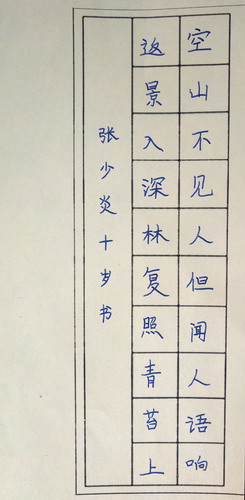 空山不见人但闻人语响
返景入深林复照青苔上
张少炎十岁书